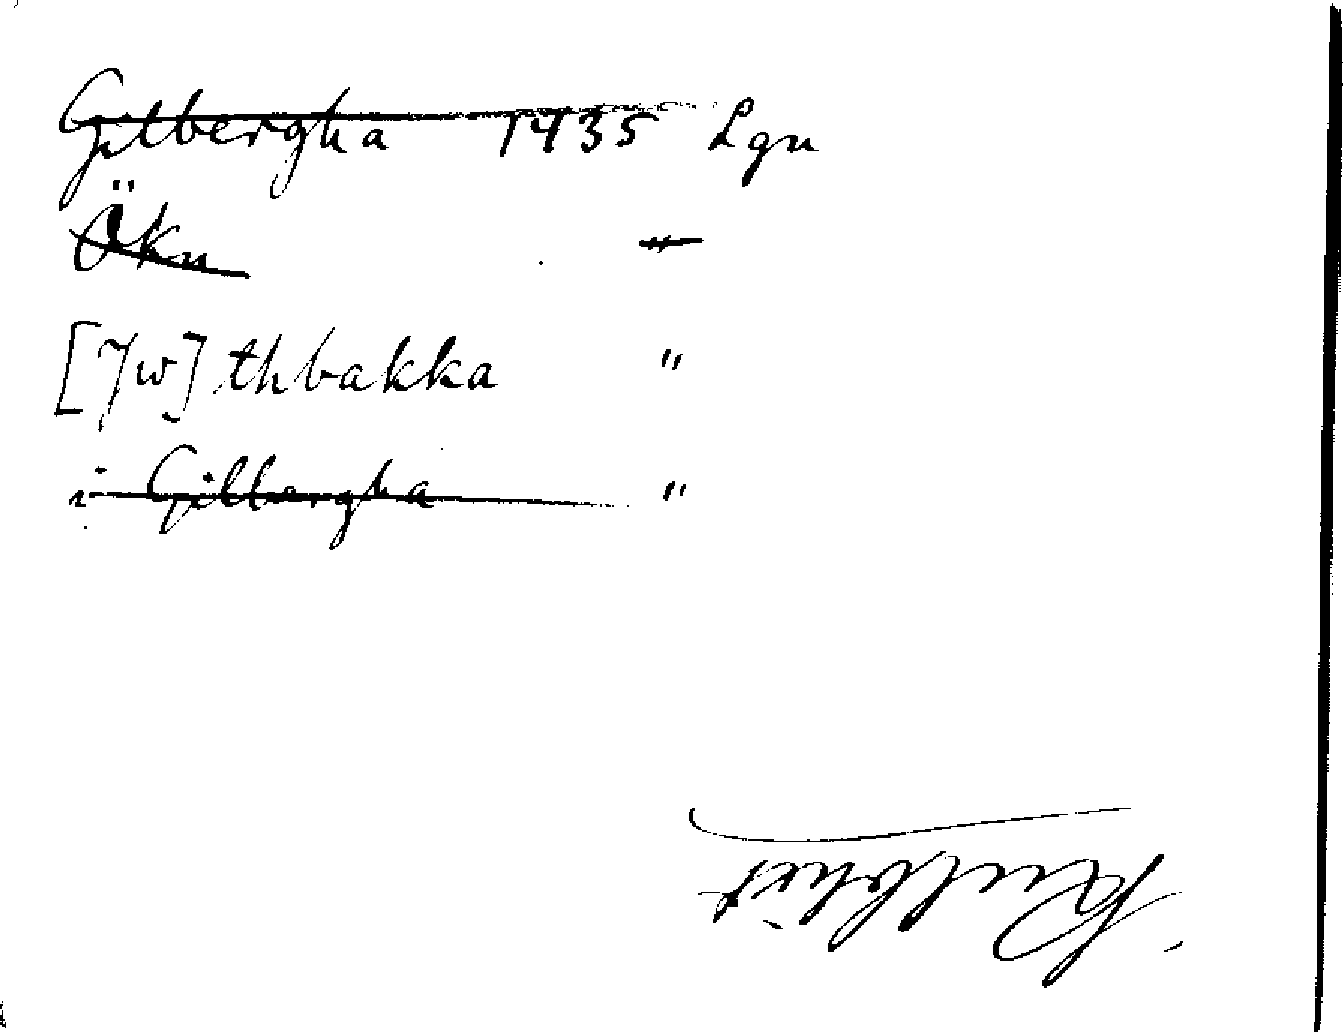 Gilbergha 1435 Lgn
Ökn "
[Jw]thbakka "
i Gilbergha "